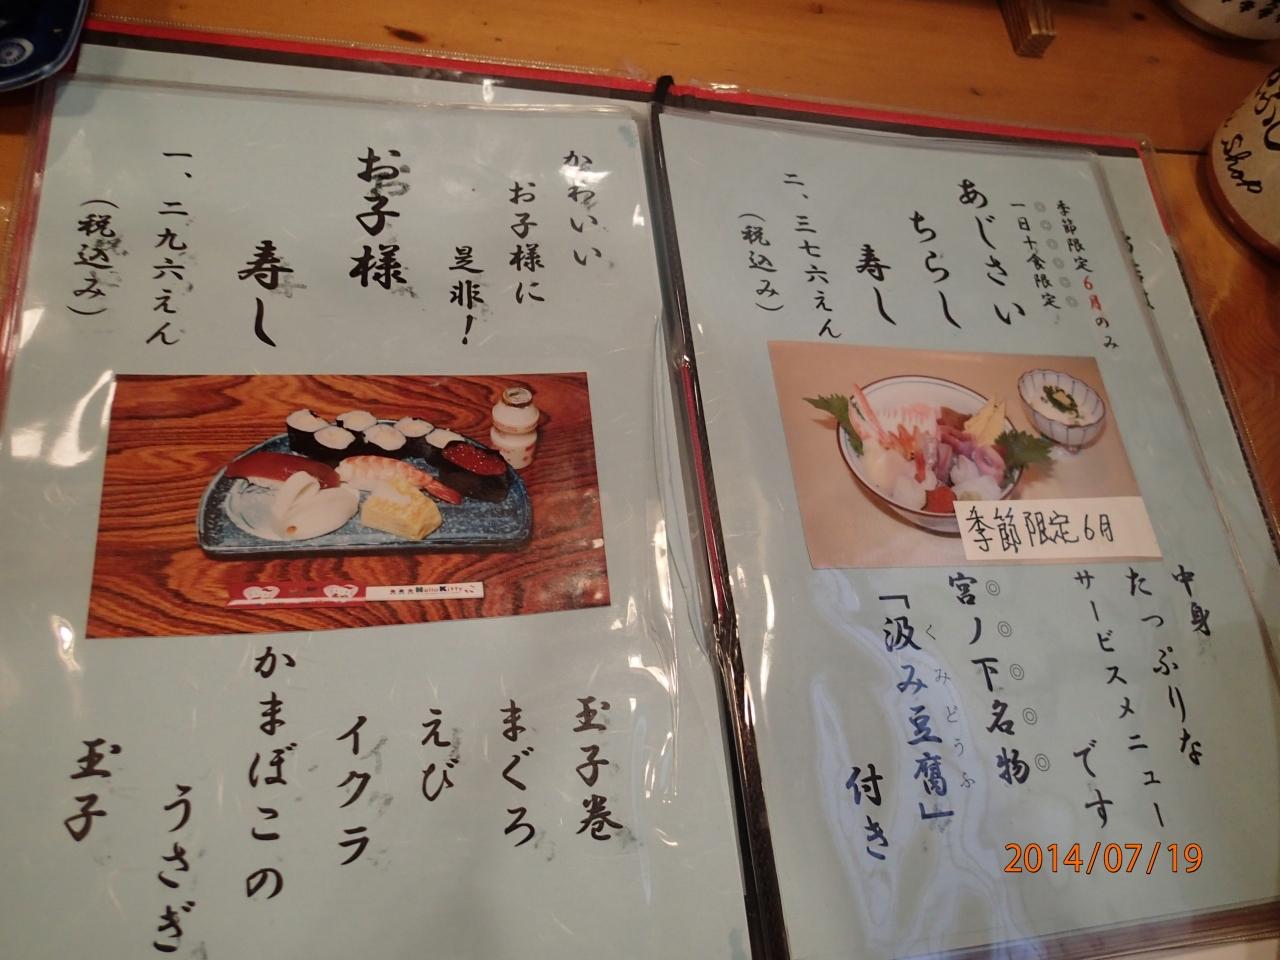 季節限定6月のみ
◎◎◎◎◎
一日十食限定
あじさい
ちらし
寿し
二、三七六えん
(税込み)
季節限定6月
中身
たっぷりな
サービスメニュー
です
◎◎◎◎◎
宮ノ下名物
くみどうふ
「汲み豆腐」
付き
かわいい
お子様に
是非!
お子様
寿し
一、二九六えん
(税込み)
Hello Kitty
玉子巻
まぐろ
えび
イクラ
かまぼこの
うさぎ
玉子
Shop
2014/07/19